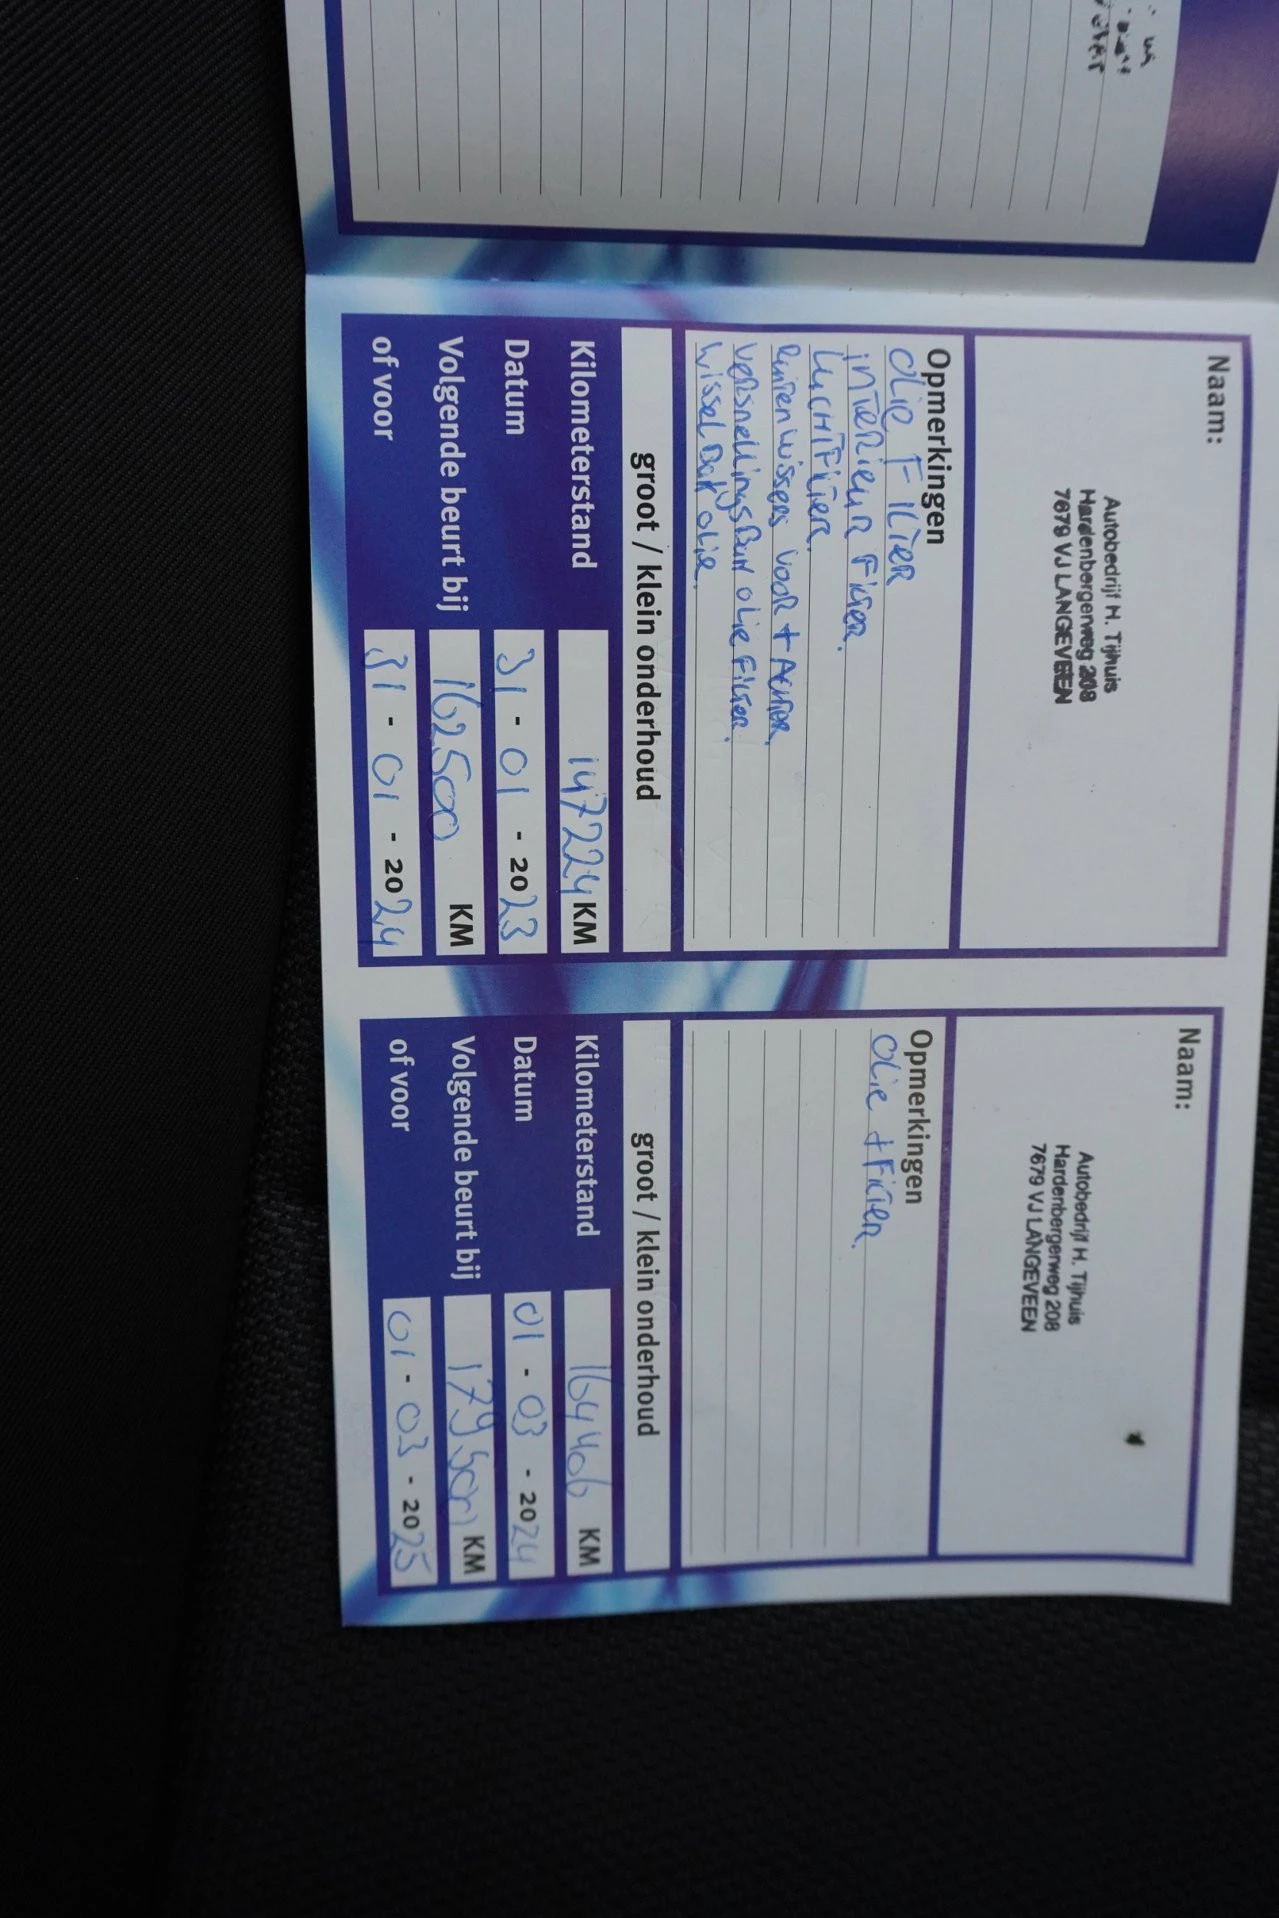 Naam:
Autobedrijf H. Tijhuis
Hardenbergerweg 208
7679 VJ LANGEVEEN
Opmerkingen
Olie Filter
interieur Filter.
Luchtfilter.
Ruitenwissers voor + Achter.
versnellingsBak olie Filter.
wisselBak olie.
groot / klein onderhoud
Kilometerstand 147224 KM
Datum 31 - 01 - 2023
Volgende beurt bij 162500 KM
of voor 31 - 01 - 2024
Naam:
Autobedrijf H. Tijhuis
Hardenbergerweg 208
7679 VJ LANGEVEEN
Opmerkingen
Olie + Filter.
groot / klein onderhoud
Kilometerstand 164406 KM
Datum 01 - 03 - 2024
Volgende beurt bij 179500 KM
of voor 01 - 03 - 2025